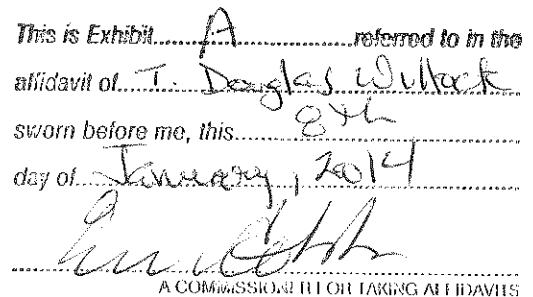 This is Exhibit A referred to in the
affidavit of T. Douglas Willock
sworn before me, this 8th
day of January, 2014
A COMMISSIONER FOR TAKING AFFIDAVITS